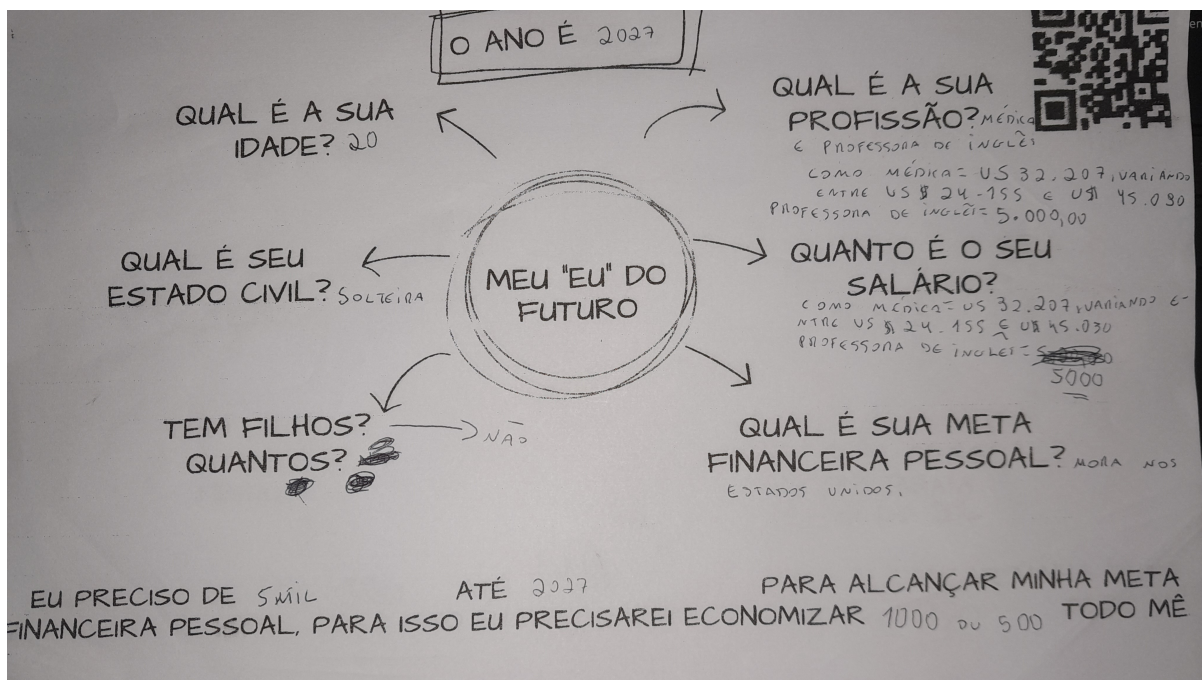 O ANO É 2027
QUAL É A SUA
IDADE? 20
QUAL É A SUA
PROFISSÃO? MÉDICA
E PROFESSORA DE INGLÊS
COMO MÉDICA = US 32.207, VARIANDO
ENTRE US $ 24.155 E US$ 45.030
PROFESSORA DE INGLÊS = 5.000,00
QUAL É SEU
ESTADO CIVIL? SOLTEIRA
MEU "EU" DO
FUTURO
QUANTO É O SEU
SALÁRIO?
COMO MÉDICA = US 32.207, VARIANDO E-
NTRE US $ 24.155 E US 45.030
PROFESSORA DE INGLEÎ =
5000
TEM FILHOS? NÃO
QUANTOS?
QUAL É SUA META
FINANCEIRA PESSOAL? MORA NOS
ESTADOS UNIDOS.
EU PRECISO DE 5MIL ATÉ 2027 PARA ALCANÇAR MINHA META
FINANCEIRA PESSOAL, PARA ISSO EU PRECISAREI ECONOMIZAR 1000 OU 500 TODO MÊ